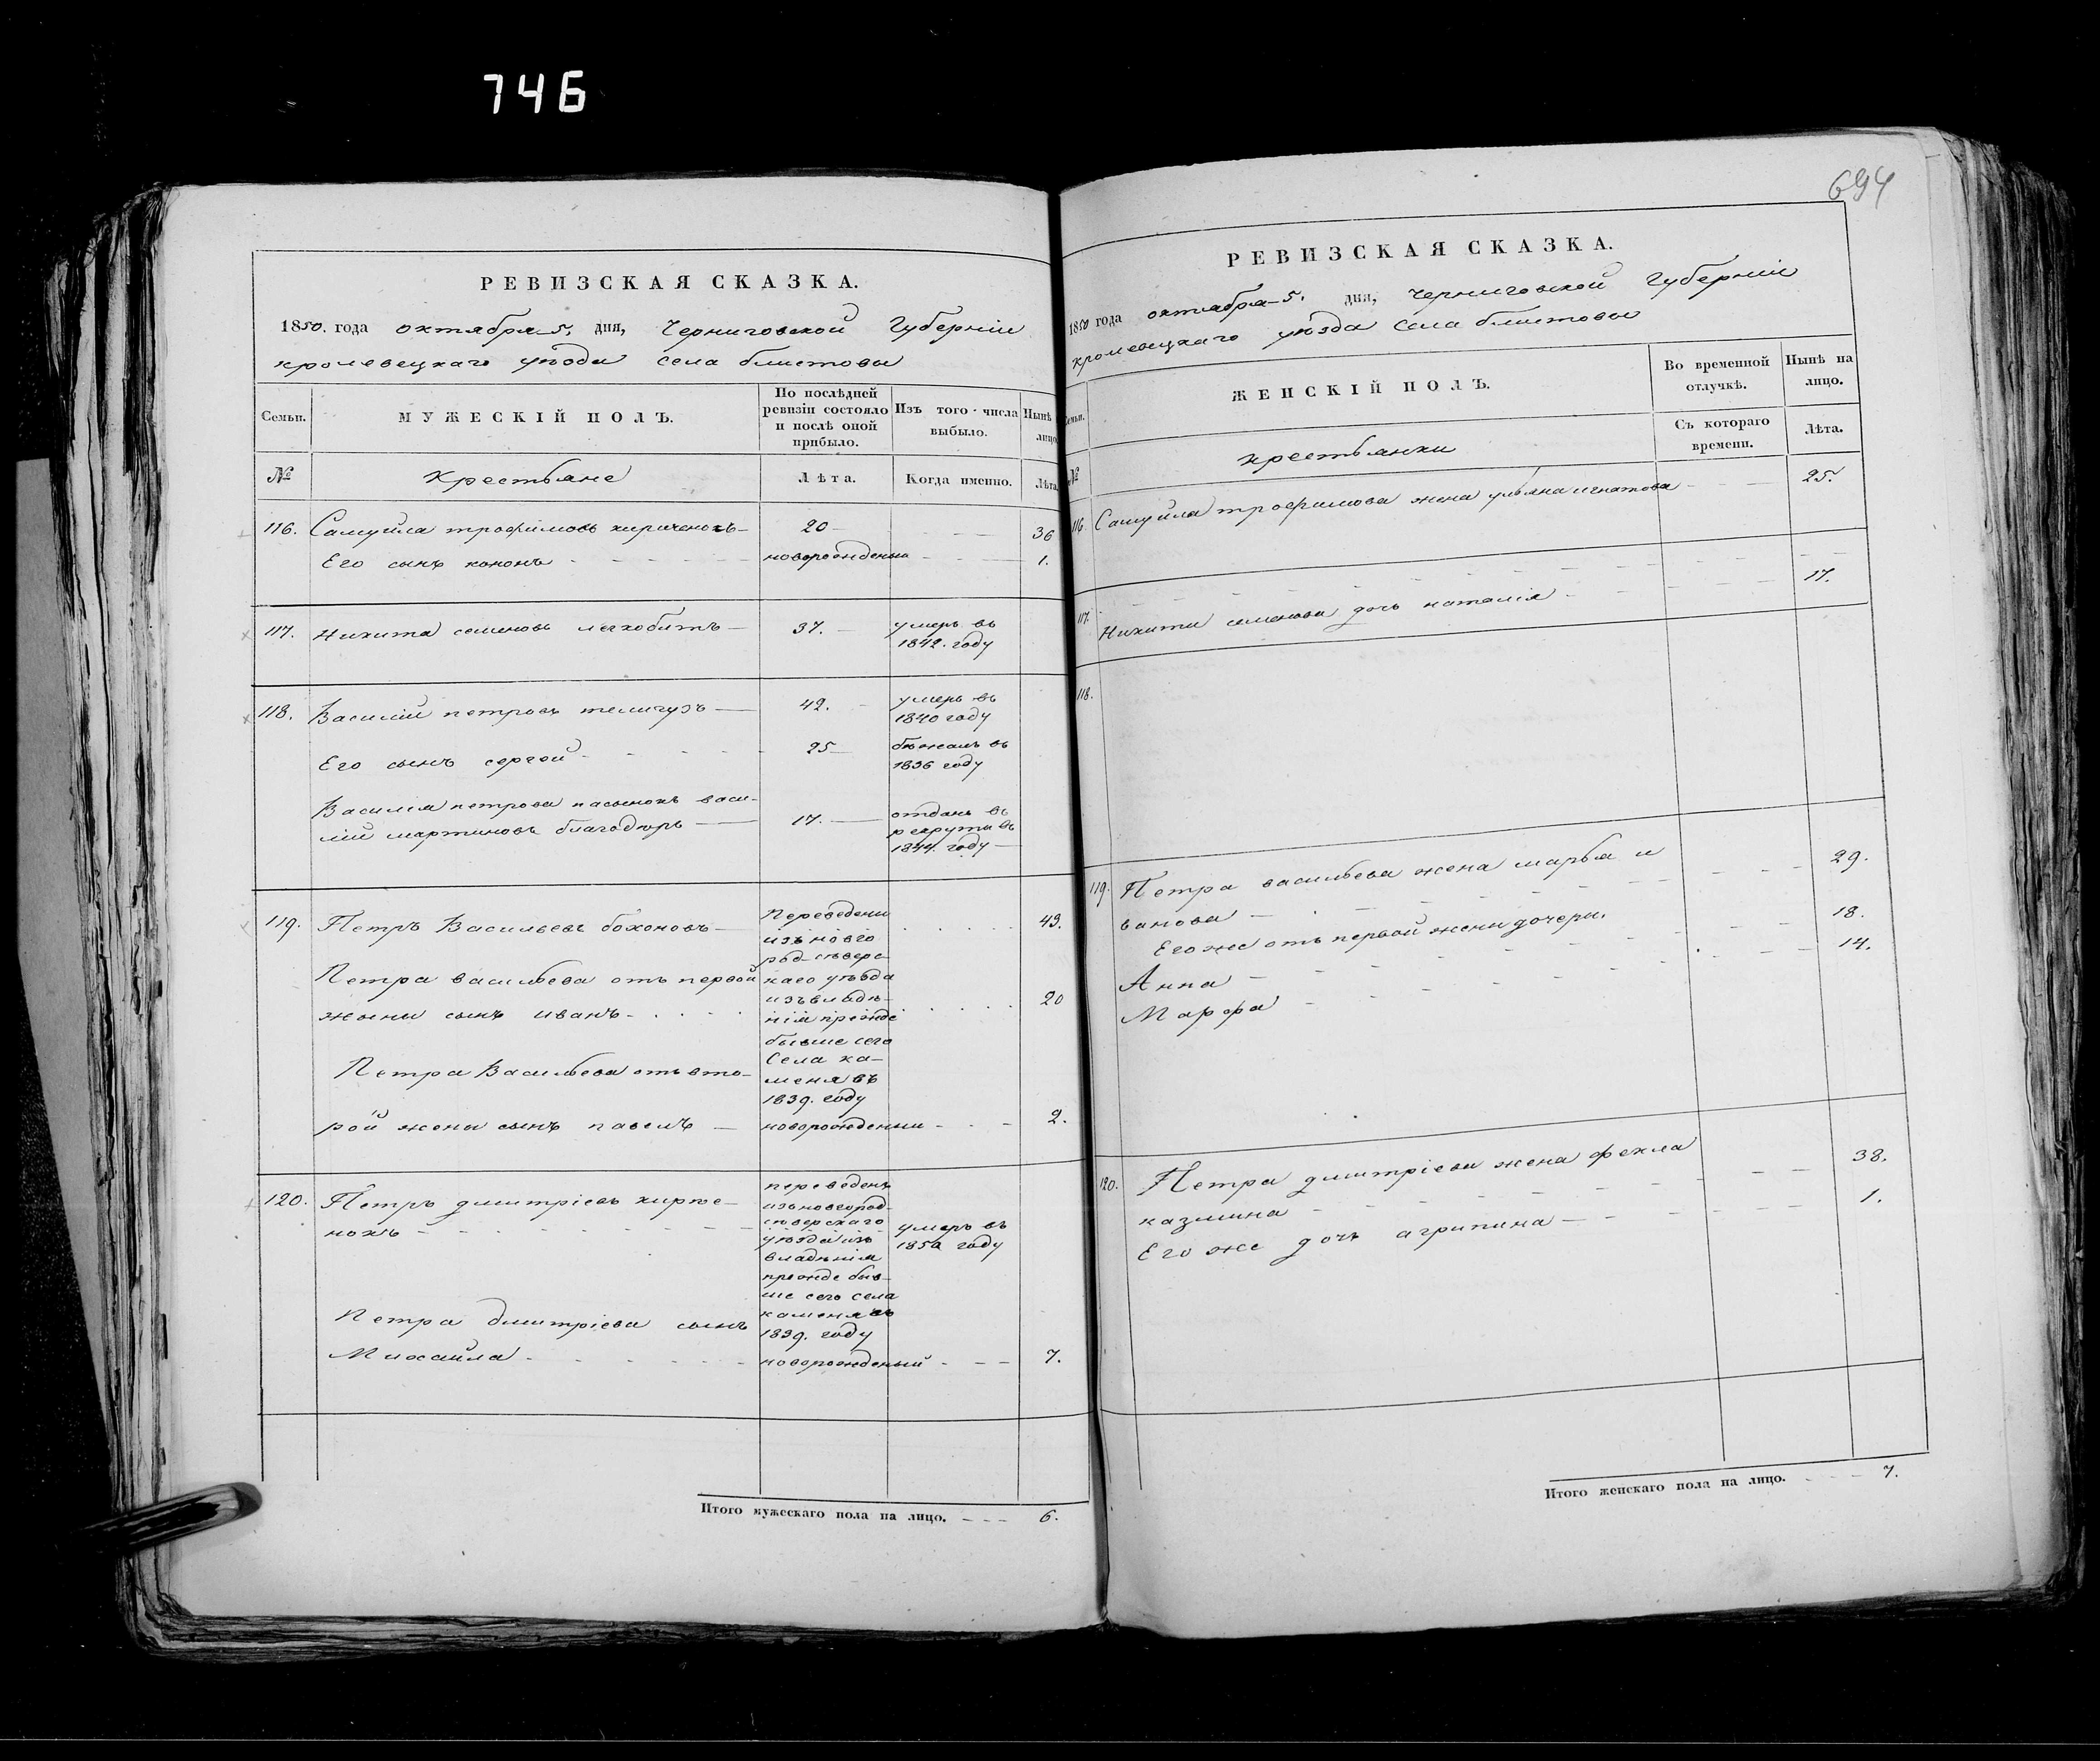 746
РЕВИЗСКАЯ СКАЗКА.
1850. года октября 5. дня, Черниговской Губерніи
кролевецкаго уѣзда села блистовы
Семьи.
МУЖЕСКІЙ ПОЛЪ.
По послѣдней
ревизіи состояло
и послѣ оной
прибыло.
Изъ того числа
выбыло.
Нынѣ
лицо
№
Крестьяне
Лѣта.
Когда именно.
Лѣта.
116. Самуйла трофимовъ кириченокъ 20 36
Его сынъ кононъ новорожденый 1.
117. Никита семеновъ легкобитъ 37. умеръ въ
1842. году
118. Василій петровъ телигузъ 42. умеръ въ
1840 году
Его сынъ сергей 25 бѣжалъ въ
1836 году
Василія петрова пасынокъ васи-
лій мартиновъ благодиръ 17. отданъ въ
рекруты въ
1844. году
119. Петръ Васильевъ бохоновъ 43.
Переведени
изъ новго
род-сѣверс-
каго уѣзда
изъ владѣ-
нія прежде
бывше сего
Села ка-
меня въ
1839. году
Петра васильева отъ первой
жены сынъ иванъ 20
Петра Васильева отъ вто-
рой жены сынъ павелъ новорожденый 2.
120. Петръ дмитріевъ кирпе-
нокъ
переведенъ
изъ новгород
сѣверскаго
уѣзда изъ
владѣнія
прежде быв-
ше сего села
каменя въ
1839. году
умеръ въ
1850 году
Петра дмитріева сынъ
Михайла новорожденый 7.
Итого мужескаго пола на лицо. 6.
694
РЕВИЗСКАЯ СКАЗКА.
1850 года октября 5. дня, Черниговской Губерніи
кролевецкаго уѣзда села блистовы
Семьи.
ЖЕНСКІЙ ПОЛЪ.
Во временной
отлучкѣ.
Нынѣ на
лицо.
Съ котораго
времени.
Лѣта.
№
крестьянки
116. Самуйла трофимова жена ульяна игнатова 25.
117. Никиты семенова дочь наталія 17.
118.
119. Петра васильева жена марья и
ванова 29.
Его же отъ первой жены дочери.
Анна 18.
Марфа 14.
120. Петра дмитріева жена фекла
казмина 38.
Его же дочь агрипина 1.
Итого женскаго пола на лицо. 7.